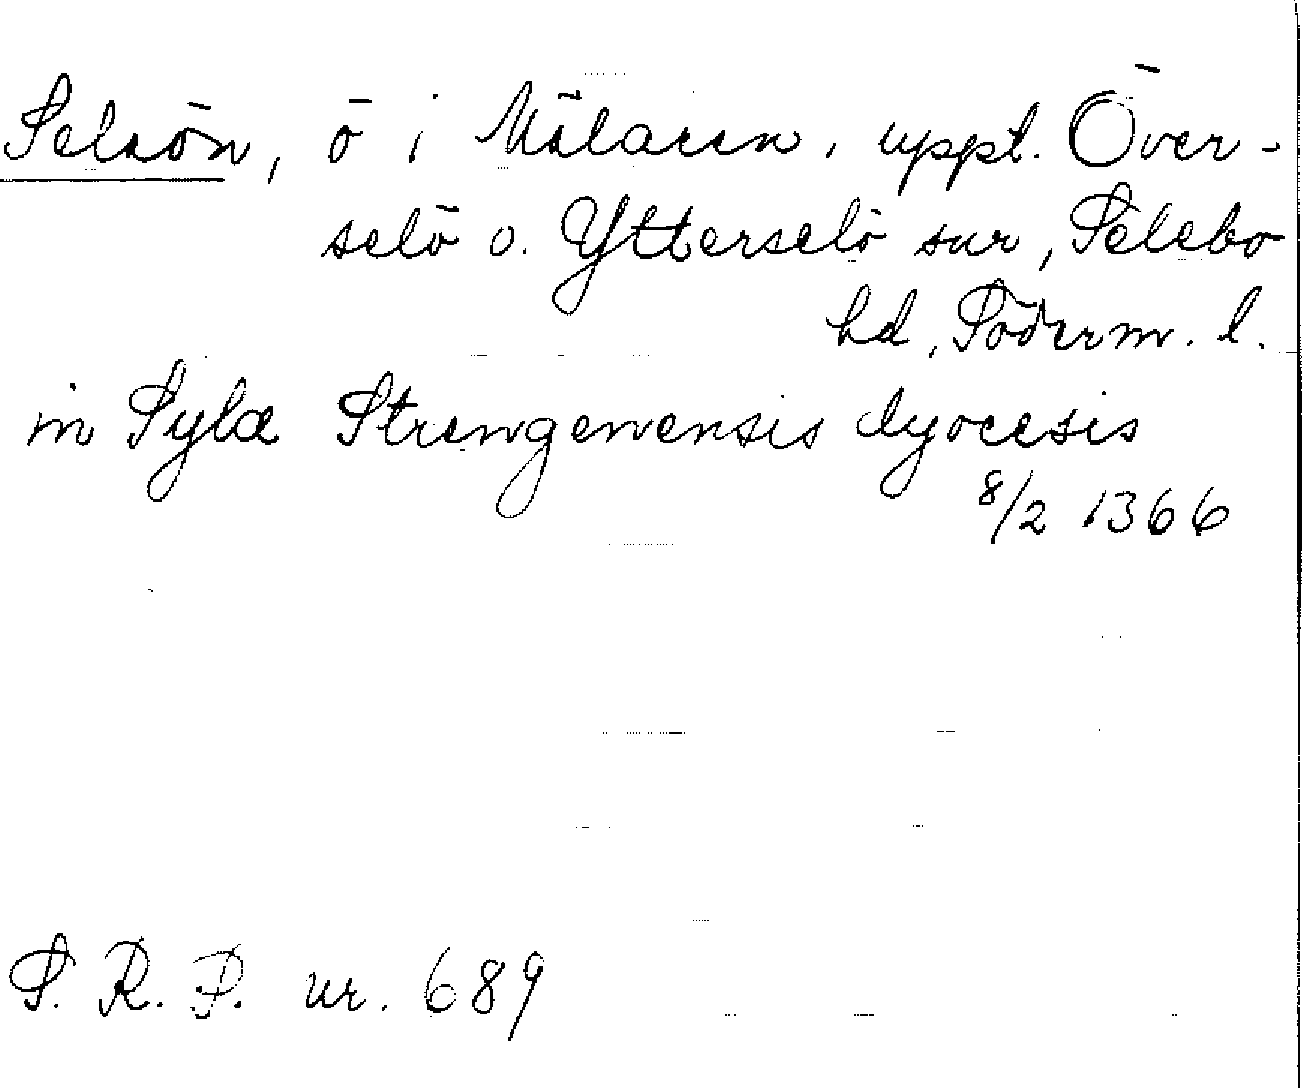 Selaön, ö i Mälaren, uppl. Över-
selö o. Ytterselö snr, Selebo
hd, Söderm. l.
in Sylæ Strengenensis dyocesis
8/2 1366
S. R. P. nr. 689